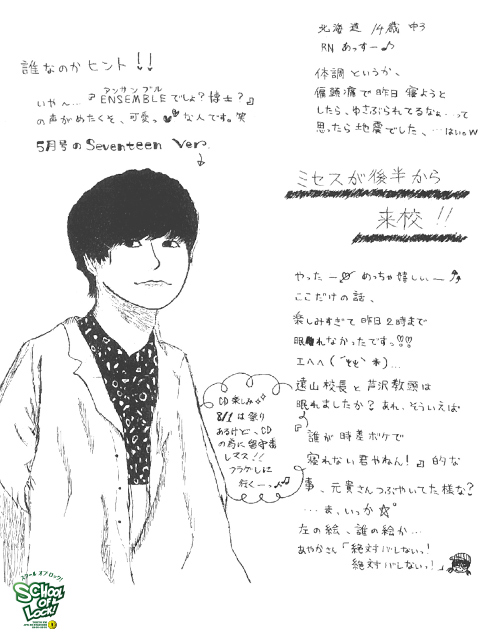 北海道 14歳 中3
RN あっすー♪
体調というか、
偏頭痛で昨日 寝ようと
したら、ゆさぶられてるなぁ…って
思ったら地震でした、…はいw
誰なのか ヒント!!
アンサンブル
いや〜…『ENSEMBLEでしょ?博士?』
の声がめたくそ、可愛っな人です。笑
5月号のSeventeen Ver.
ミセスが後半から
来校!!
やったー めっちゃ嬉しぃー
ここだけの話、
楽しみすぎて昨日2時まで
眠れなかったですっ!!
エヘヘ(
遠山校長と芦沢教頭は
眠れましたか? あれ、そういえば
『誰が時差ボケで
寝れない君やねん!』的な
事、元貴さんつぶやいてた様な?
…ま、いっか☆
左の絵、誰の絵か…
あやかさん「絶対バレないっ!
絶対バレないっ!」
CD楽しみ
8/1は登り
あるけど、CD
の為に留守番
レスス!!
フラゲしに
行くーっ♪
スクール オブ ロック!
SCHOOL
OF
LOCK!